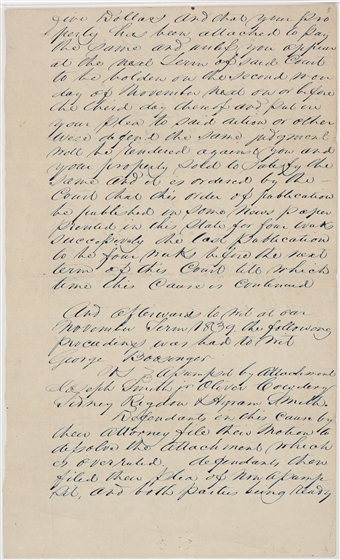 five Dollars and that your pro
perty has been attached to pay
the same and unless you appear
at the next Term of said Court
to be holden on the second mon
day of November next on or before
the third day thereof and put in
your plea to said action or other
wise defend the same judgment
will be rendered against you and
your property sold to satisfy the
same and it is ordered by the
Court that this order of publication
be published in some News paper
printed in this State for four weeks
successively the last publication
to be four weeks before the next
term of this Court till which
time this Cause is continued
And afterwards to wit at our
November Term 1839 the following
proceedings was had to wit
George
vs Assumpsit by Attachment
Joseph Smith jr Oliver Cowdery
Sidney Rigdon & Hyram Smith
Defendants in this cause by
their Attorney file their motion to
desolve the attachment which
is overruled defendants then
filed their plea of non assump
sit, and both parties being ready